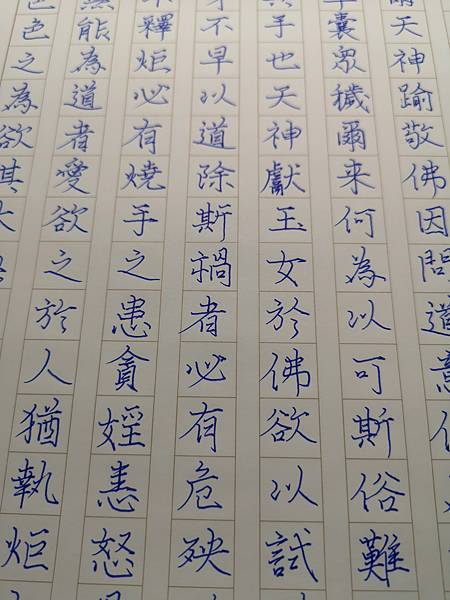 天神踰敬佛因問道意
囊眾穢爾来何為以可斯俗難
手也天神獻玉女於佛欲以試
不早以道除斯禍者必有危殃
釋炬必有燒手之患貪婬恚怒
能為道者愛欲之於人猶執炬
色之為欲其大